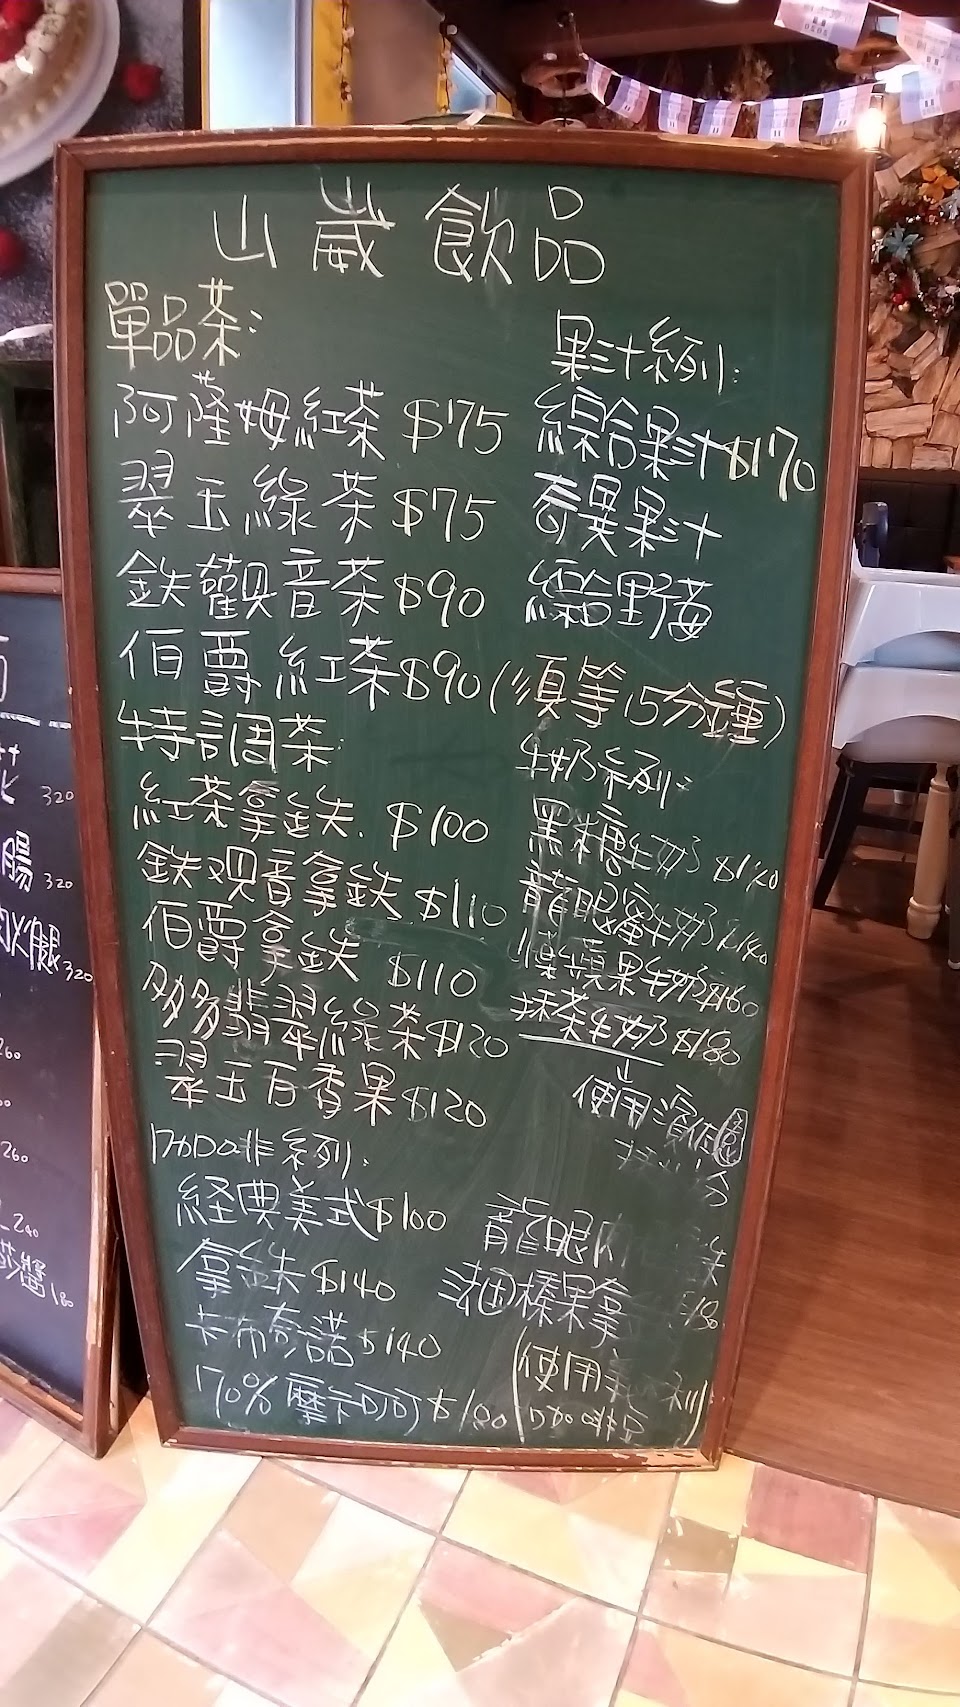 山崴飲品
單品茶:
阿薩姆紅茶 $75
翠玉綠茶 $75
鉄觀音茶 $90
伯爵紅茶 $90
特調茶:
紅茶拿鉄 $100
鉄观音拿鉄 $110
伯爵拿鉄 $110
多多翡翠綠茶 $120
翠玉百香果 $120
咖啡系列:
経典美式 $100
拿鉄 $140
卡布奇諾 $140
70%摩卡可可
果汁系列:
綜合果汁 $170
奇異果汁
綜合野莓
(須等15分鐘)
牛奶系列:
黑糖牛奶 $140
龍眼蜜牛奶 140
蘋果牛奶 $160
抹茶牛奶 $180
使用
分
龍眼
榛果拿
180
(使用
咖啡豆)
320
腸 320
火腿 320
260
260
240
醬 180